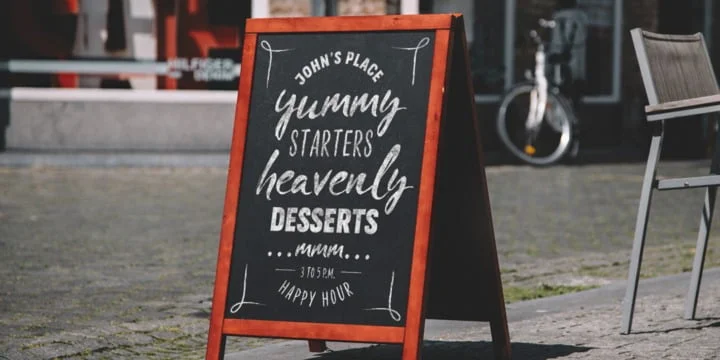 HILFIGER
DENIM
JOHN'S PLACE
yummy
STARTERS
heavenly
DESSERTS
...mmm...
3 TO 5 P.M.
HAPPY HOUR